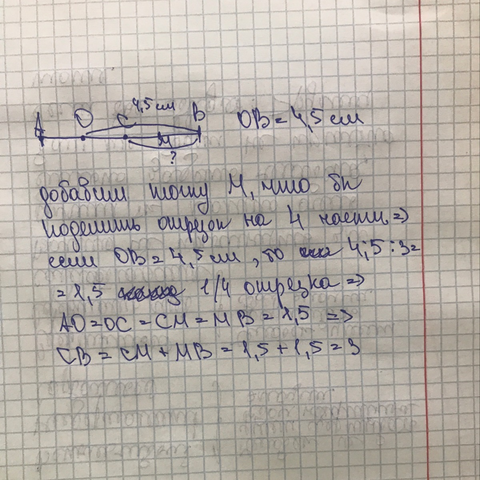 4,5 см
A O C B OB = 4,5 см
M
?
добавим точку M, что бы
поделить отрезок на 4 части =>
если OB = 4,5 см, то 4,5 : 3 =
= 1,5 1/4 отрезка =>
AO = OC = CM = MB = 1,5 =>
CB = CM + MB = 1,5 + 1,5 = 3